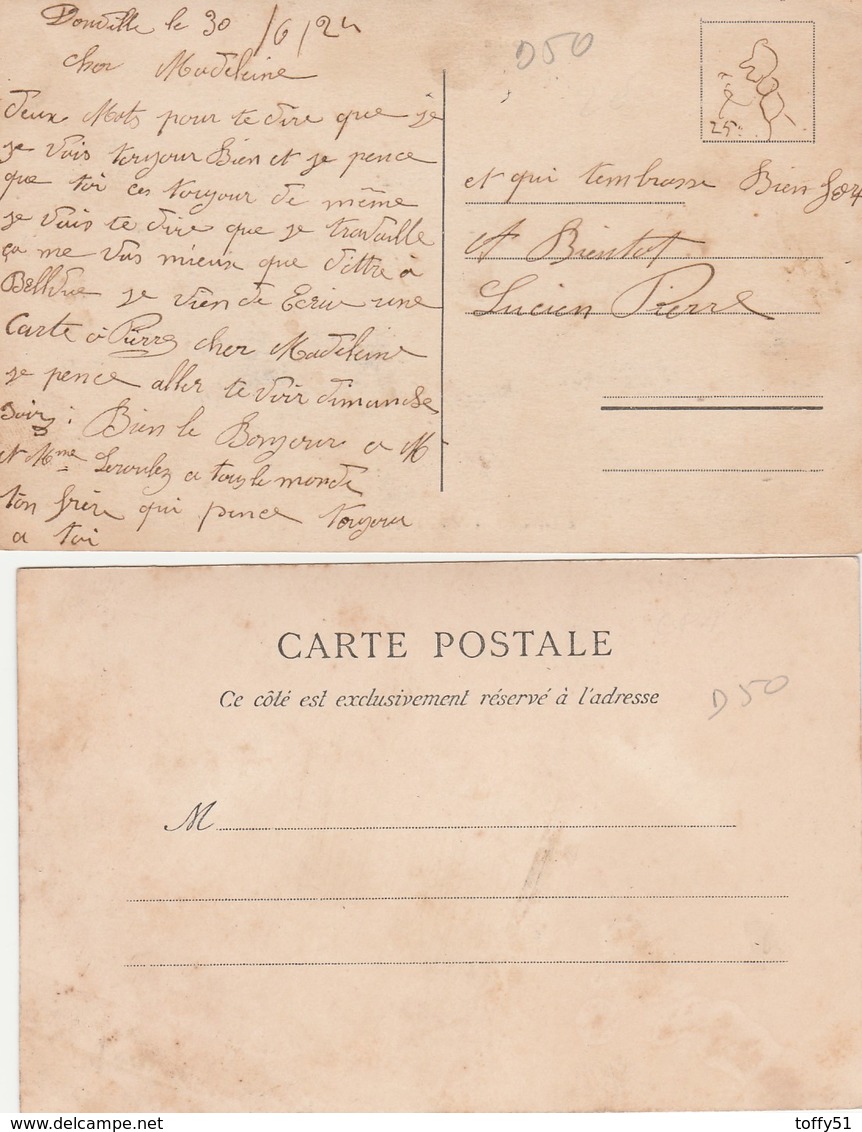 Donville le 30/6/24
cher Madeleine
deux Mots pour te dire que je
je vais toujour Bien et je pence
que toi ces toujour de même
je vais te dire que je travaille
ça me vas mieux que d'ittre à
Bellvue je vien de Ecrir une
Carte à Pierre cher Madeleine
je pence aller te voir dimanche
soir : Bien le Bonjour a M
et Mme a tous le monde
ton frère qui pence toujour
a toi
D50
25
et qui tembrasse Bien fort
A Bientot
Lucien Pierre
CARTE POSTALE
Ce côté est exclusivement réservé à l'adresse
D50
M
toffy51